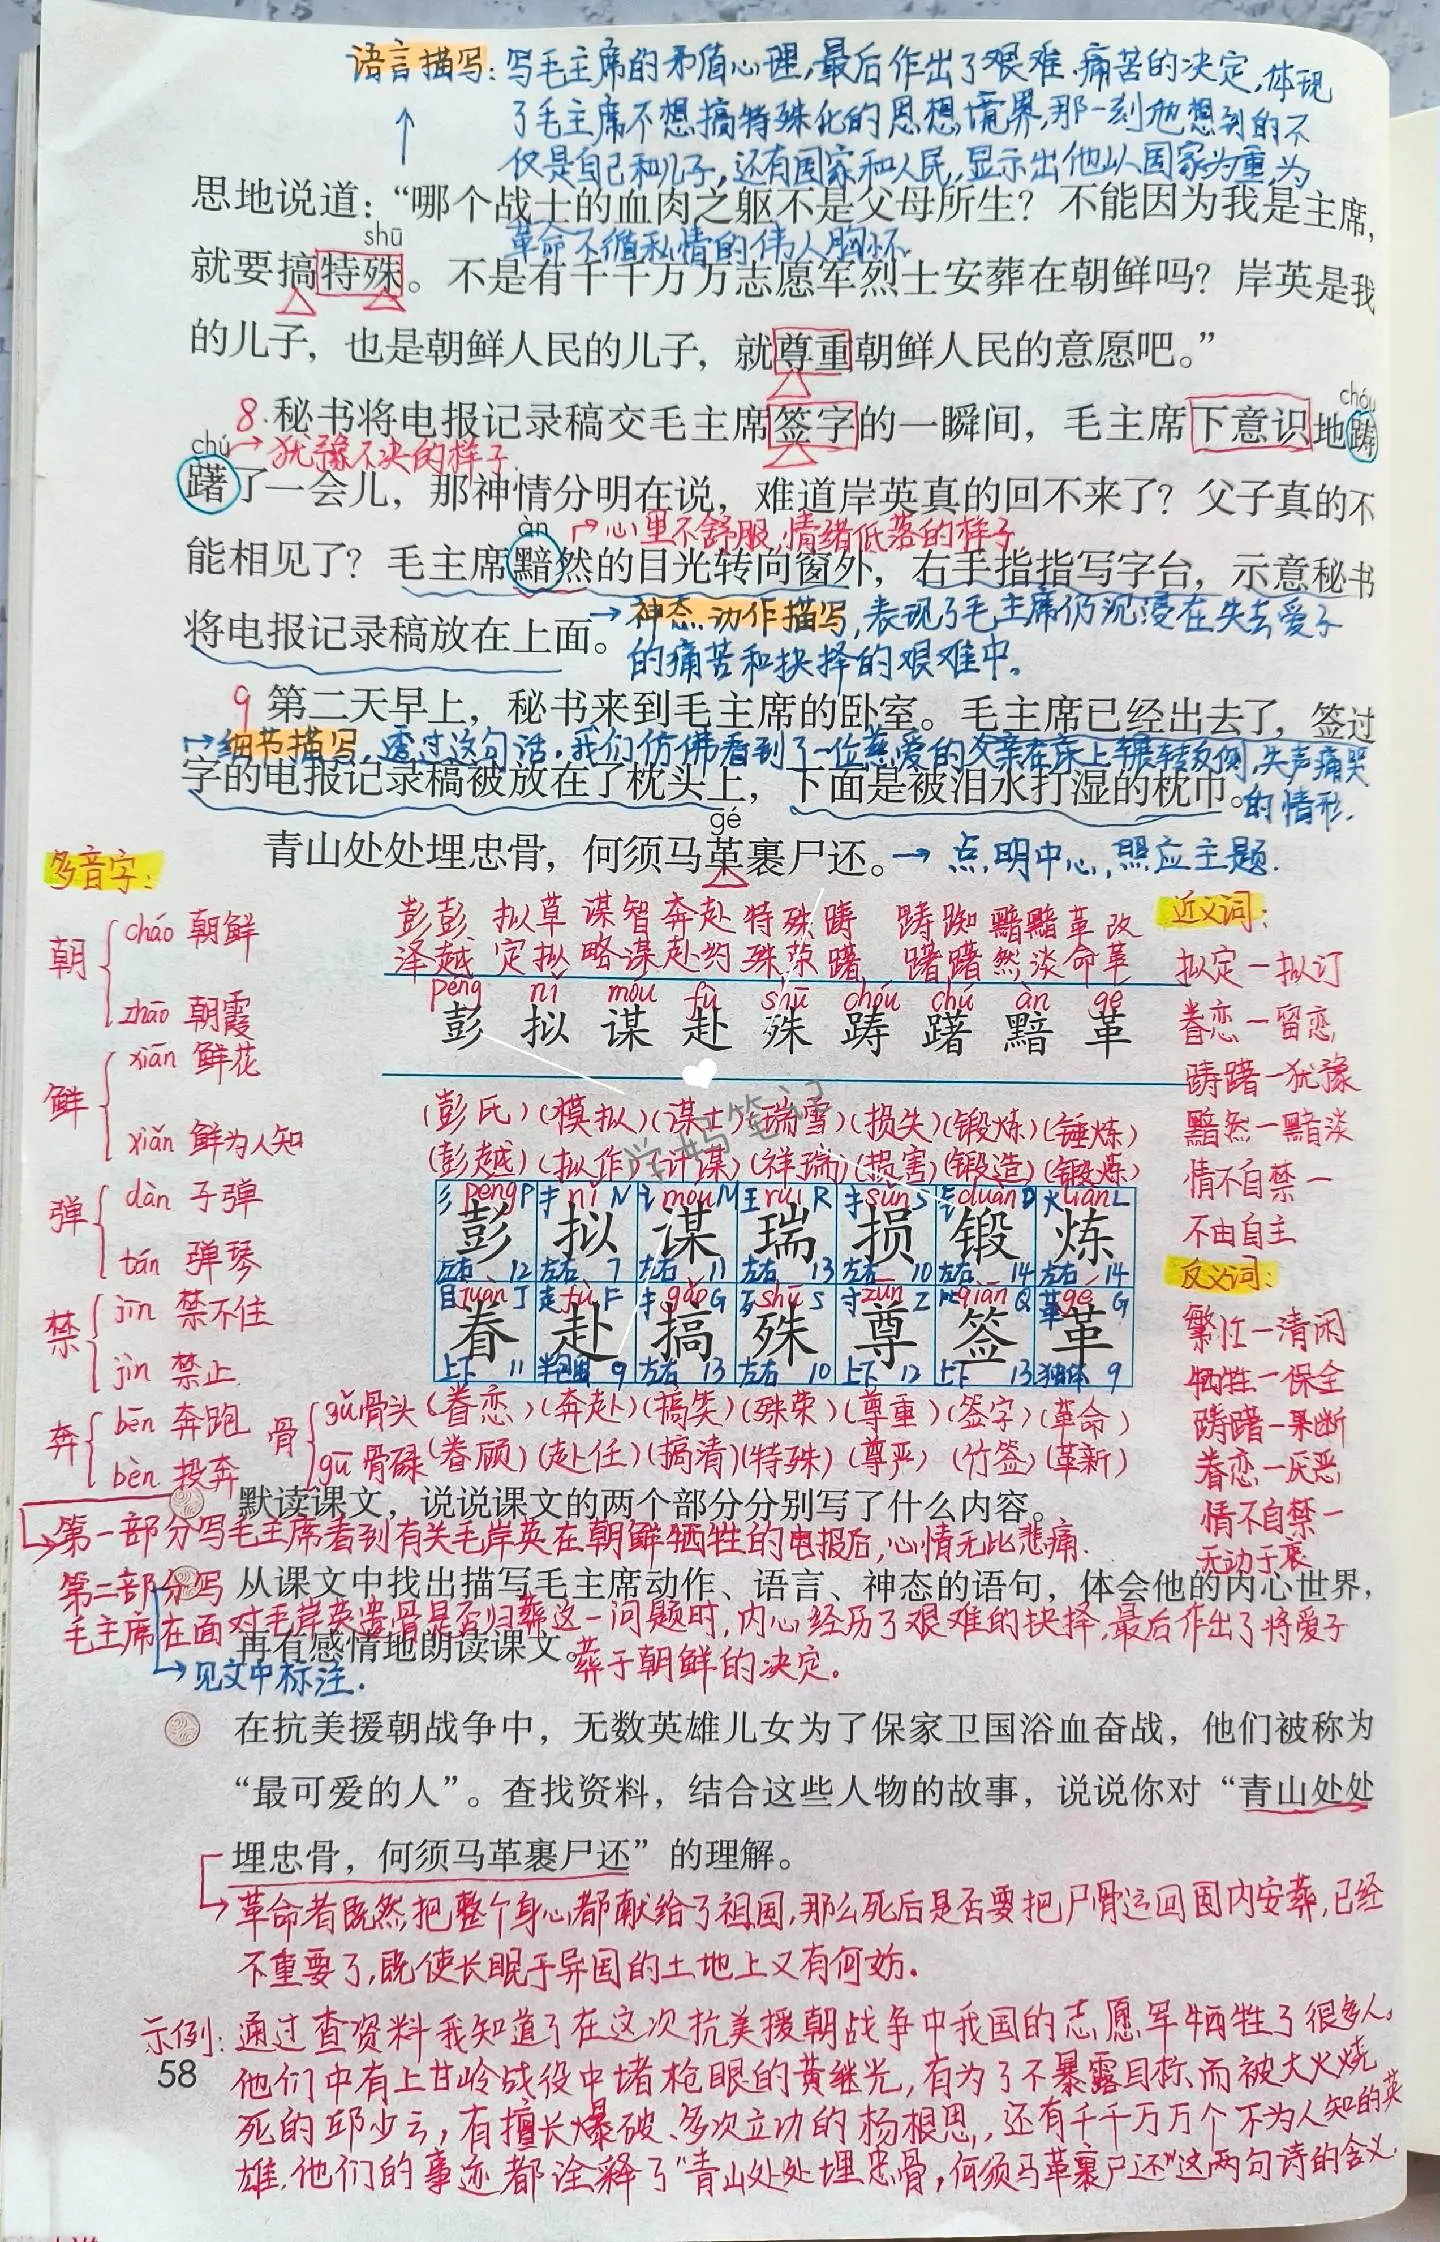 语言描写：写毛主席的矛盾心理,最后作出了艰难、痛苦的决定,体现
了毛主席不想搞特殊化的思想境界,那一刻他想到的不
仅是自己和儿子,还有国家和人民,显示出他以国家为重,为
革命不循私情的伟人胸怀.
思地说道：“哪个战士的血肉之躯不是父母所生？不能因为我是主席，
shū
就要搞特殊。不是有千千万万志愿军烈士安葬在朝鲜吗？岸英是我
的儿子，也是朝鲜人民的儿子，就尊重朝鲜人民的意愿吧。”
chóu
8.秘书将电报记录稿交毛主席签字的一瞬间，毛主席下意识地踌
chú
犹豫不决的样子.
躇了一会儿，那神情分明在说，难道岸英真的回不来了？父子真的不
àn
心里不舒服,情绪低落的样子.
能相见了？毛主席黯然的目光转向窗外，右手指指写字台，示意秘书
将电报记录稿放在上面。
神态.动作描写,表现了毛主席仍沉浸在失去爱子
的痛苦和抉择的艰难中。
9 第二天早上，秘书来到毛主席的卧室。毛主席已经出去了，签过
细节描写,透过这句话,我们仿佛看到了一位慈爱的父亲在床上辗转反侧,失声痛哭
的情形.
字的电报记录稿被放在了枕头上，下面是被泪水打湿的枕巾。
gé
青山处处埋忠骨，何须马革裹尸还。
点明中心,照应主题.
多音字：
朝
cháo 朝鲜
zhāo 朝霞
鲜
xiān 鲜花
xiǎn 鲜为人知
弹
dàn 子弹
tán 弹琴
禁
jīn 禁不住
jìn 禁止
奔
bēn 奔跑
bèn 投奔
骨
gǔ骨头
gū骨碌
彭彭 拟草 谋智 奔赴 特殊 踌 踌踟 黯黯 革改
泽越 定拟 略谋 赴约 殊荣 躇 躇躇 然淡 命革
péng nǐ móu fù shū chóu chú àn gé
彭 拟 谋 赴 殊 踌 躇 黯 革
(彭氏)(模拟)(谋士)(瑞雪)(损失)(锻炼)(锤炼)
(彭越)(拟作)(计谋)(祥瑞)(损害)(锻造)(锻炼)
彡 péng P 扌 nǐ N 讠 móu M 王 ruì R 扌 sǔn S 钅 duàn D 火 liàn L
彭 拟 谋 瑞 损 锻 炼
左右 12 左右 7 左右 11 左右 13 左右 10 左右 14 左右 14
目 juàn J 走 fù F 扌 gǎo G 歹 shū S 寸 zūn Z 𥫗 qiān Q 革 gé G
眷 赴 搞 殊 尊 签 革
上下 11 半包围 9 左右 13 左右 10 上下 12 上下 13 独体 9
(眷恋)(奔赴)(搞笑)(殊荣)(尊重)(签字)(革命)
(眷顾)(赴任)(搞清)(特殊)(尊严)(竹签)(革新)
近义词：
拟定一拟订
眷恋一留恋
踌躇一犹豫
黯然一黯淡
情不自禁一
不由自主
反义词：
繁忙一清闲
牺牲一保全
踌躇一果断
眷恋一厌恶
情不自禁一
无动于衷
默读课文，说说课文的两个部分分别写了什么内容。
第一部分写毛主席看到有关毛岸英在朝鲜牺牲的电报后,心情无比悲痛.
第二部分写
毛主席在面对毛岸英遗骨是否归葬这一问题时,内心经历了艰难的抉择,最后作出了将爱子
葬于朝鲜的决定.
从课文中找出描写毛主席动作、语言、神态的语句，体会他的内心世界，
再有感情地朗读课文。
见文中标注.
在抗美援朝战争中，无数英雄儿女为了保家卫国浴血奋战，他们被称为
“最可爱的人”。查找资料，结合这些人物的故事，说说你对“青山处处
埋忠骨，何须马革裹尸还”的理解。
革命者既然把整个身心都献给了祖国,那么死后是否要把尸骨运回国内安葬,已经
不重要了,既使长眠于异国的土地上又有何妨.
示例：通过查资料我知道了在这次抗美援朝战争中我国的志愿军牺牲了很多人,
他们中有上甘岭战役中堵枪眼的黄继光,有为了不暴露目标,而被大火烧
死的邱少云,有擅长爆破、多次立功的杨根思,还有千千万万个不为人知的英
雄.他们的事迹都诠释了"青山处处埋忠骨,何须马革裹尸还"这两句诗的含义.
58
学妈笔记